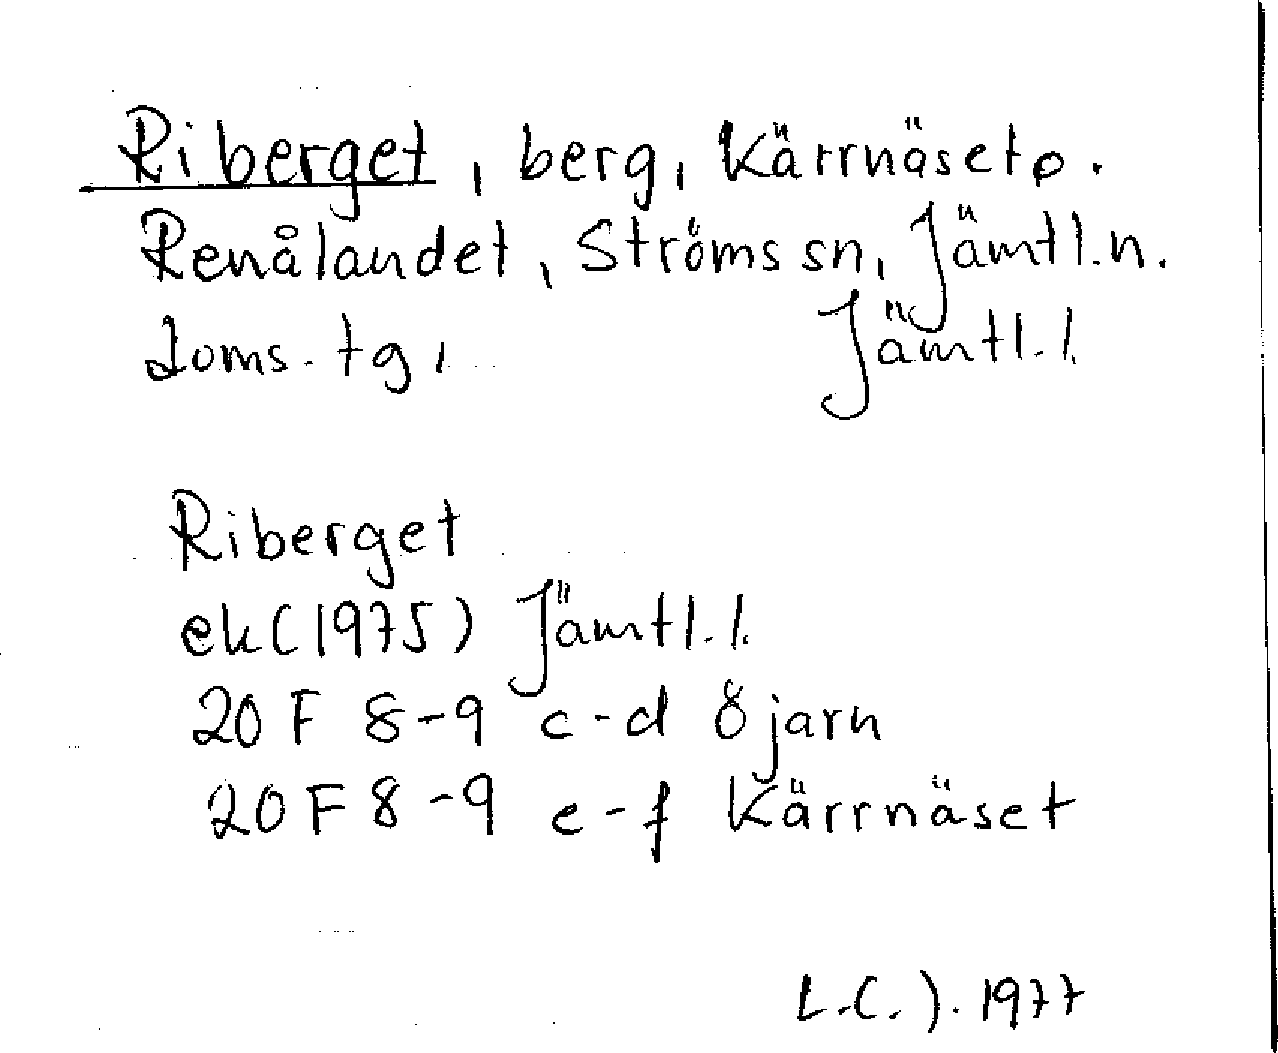 Riberget, berg, Kärrnäset o.
Renålandet, Ströms sn, Jämtl.n.
doms. tg, Jämtl.l.
Riberget
ek (1975) Jämtl.l.
20 F 8-9 c-d Öjarn
20 F 8-9 e-f Kärrnäset
L.C.J. 1977